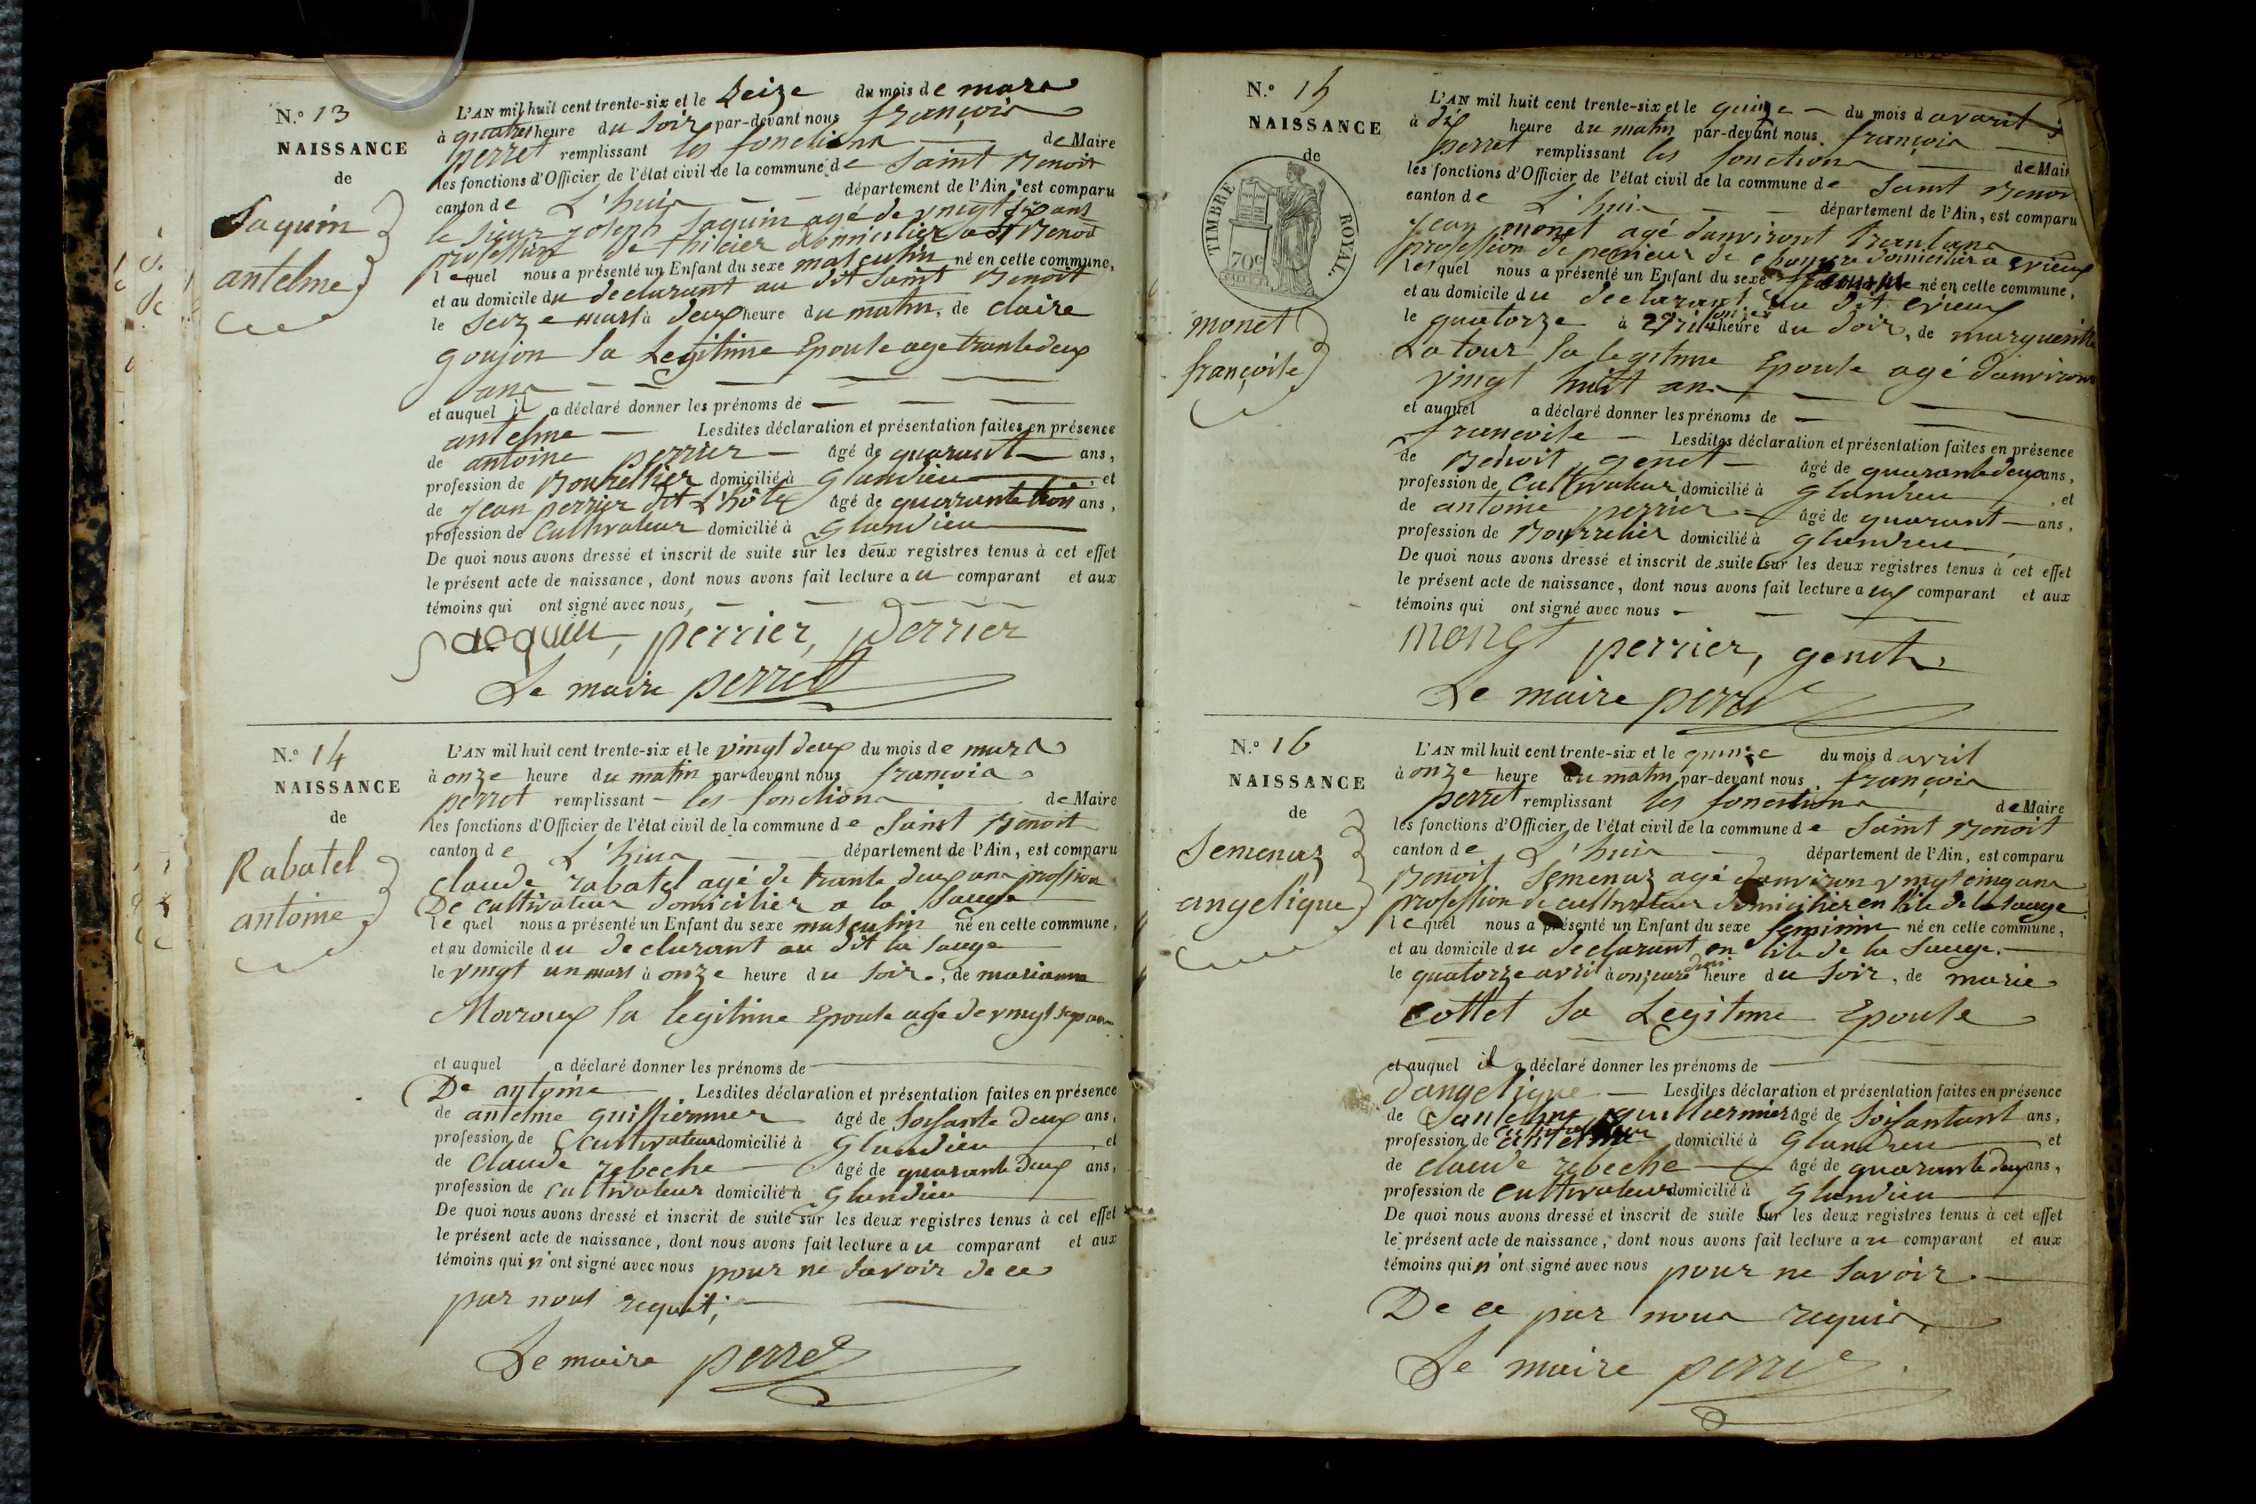 N.° 13
NAISSANCE
de
Jaquin
antelme
L'AN mil huit cent trente-six et le Seize du mois de mars
à quatre heure du soir par-devant nous françois
perret remplissant les fonctions de Maire
les fonctions d'Officier de l'état civil de la commune de Saint Benoit
canton de L'huis département de l'Ain, est comparu
le sieur joseph Jaquin agé de vingt six ans
profession de domicilier a St Benoit
lequel nous a présenté un Enfant du sexe masculin né en cette commune,
et au domicile du declarant au dit Saint Benoit
le Seize mars à deux heure du matin, de claire
goujon sa Legitime Epouse age trante deux
ans
et auquel il a déclaré donner les prénoms de
antelme Lesdites déclaration et présentation faites en présence
de antoine perrier âgé de quarant ans,
profession de Bourellier domicilié à Glandieu et
de jean perrier dit L'hôte âgé de quarante trois ans,
profession de Cultivateur domicilié à Glandieu
De quoi nous avons dressé et inscrit de suite sur les deux registres tenus à cet effet
le présent acte de naissance, dont nous avons fait lecture au comparant et aux
témoins qui ont signé avec nous,
Jacquin, perrier, perrier
Le maire perret
N.° 14
NAISSANCE
de
Rabatel
antoine
L'AN mil huit cent trente-six et le vingt deux du mois de mars
à onze heure du matin par-devant nous françois
perret remplissant les fonctions de Maire
les fonctions d'Officier de l'état civil de la commune de Saint Benoit
canton de L'huis département de l'Ain, est comparu
claude rabatel agé de trante deux ans profession
De cultivateur domicilier a la Sauge
lequel nous a présenté un Enfant du sexe masculin né en cette commune,
et au domicile du declarant au dit la Sauge
le vingt un mars à onze heure du soir, de marianne
Maroux sa legitime Epouse age de vingt sept ans
et auquel a déclaré donner les prénoms de
De antoine Lesdites déclaration et présentation faites en présence
de antelme guilliermier âgé de Soisante deux ans,
profession de Cultivateur domicilié à Glandieu et
de Claude rebeche âgé de quarante deux ans,
profession de Cultivateur domicilié à Glandieu
De quoi nous avons dressé et inscrit de suite sur les deux registres tenus à cet effet
le présent acte de naissance, dont nous avons fait lecture au comparant et aux
témoins qui n'ont signé avec nous pour ne savoir de ce
par nous requit,
Le maire perret
N.° 15
NAISSANCE
de
TIMBRE ROYAL.
70c
monet
françoise
L'AN mil huit cent trente-six et le quinze du mois d avavril
à dix heure du matin par-devant nous françois
perret remplissant les fonctions de Maire
les fonctions d'Officier de l'état civil de la commune de Saint Benoit
canton de L'huis département de l'Ain, est comparu
jean monet agé danviront trantans
profession de domicilier a evieux
lequel nous a présenté un Enfant du sexe né en cette commune,
et au domicile du declarant au dit evieux
le quatorze à heure du soir, de marguerite
Latour sa legitime Epouse agé danviron
vingt huit ans
et auquel a déclaré donner les prénoms de
francoise Lesdites déclaration et présentation faites en présence
de Benoit genet âgé de quarante deux ans,
profession de Cultivateur domicilié à Glandieu et
de antoine perrier âgé de quarant ans,
profession de Bourrelier domicilié à Glandieu
De quoi nous avons dressé et inscrit de suite sur les deux registres tenus à cet effet
le présent acte de naissance, dont nous avons fait lecture a ux comparant et aux
témoins qui ont signé avec nous
monet perrier, genet
Le maire perret
N.° 16
NAISSANCE
de
Semenaz
angelique
L'AN mil huit cent trente-six et le quinze du mois d avril
à onze heure du matin par-devant nous françois
perret remplissant les fonctions de Maire
les fonctions d'Officier de l'état civil de la commune de Saint Benoit
canton de L'huis département de l'Ain, est comparu
Benoit Semenaz agé danviron vingt cinq ans
profession de cultivateur domicilier en l'ile de la Sauge
lequel nous a présenté un Enfant du sexe feminin né en cette commune,
et au domicile du declarant en l'ile de la Sauge.
le quatorze avril à heure du soir, de marie
cottet sa Legitime Epouse
et auquel il a déclaré donner les prénoms de
dangelique Lesdites déclaration et présentation faites en présence
de guilliermier âgé de Soisantant ans,
profession de domicilié à Glandieu et
de claude rebeche âgé de quarante deux ans,
profession de Cultivateur domicilié à Glandieu
De quoi nous avons dressé et inscrit de suite sur les deux registres tenus à cet effet
le présent acte de naissance, dont nous avons fait lecture au comparant et aux
témoins qui n'ont signé avec nous pour ne savoir.
De ce par nous requis,
Le maire perret